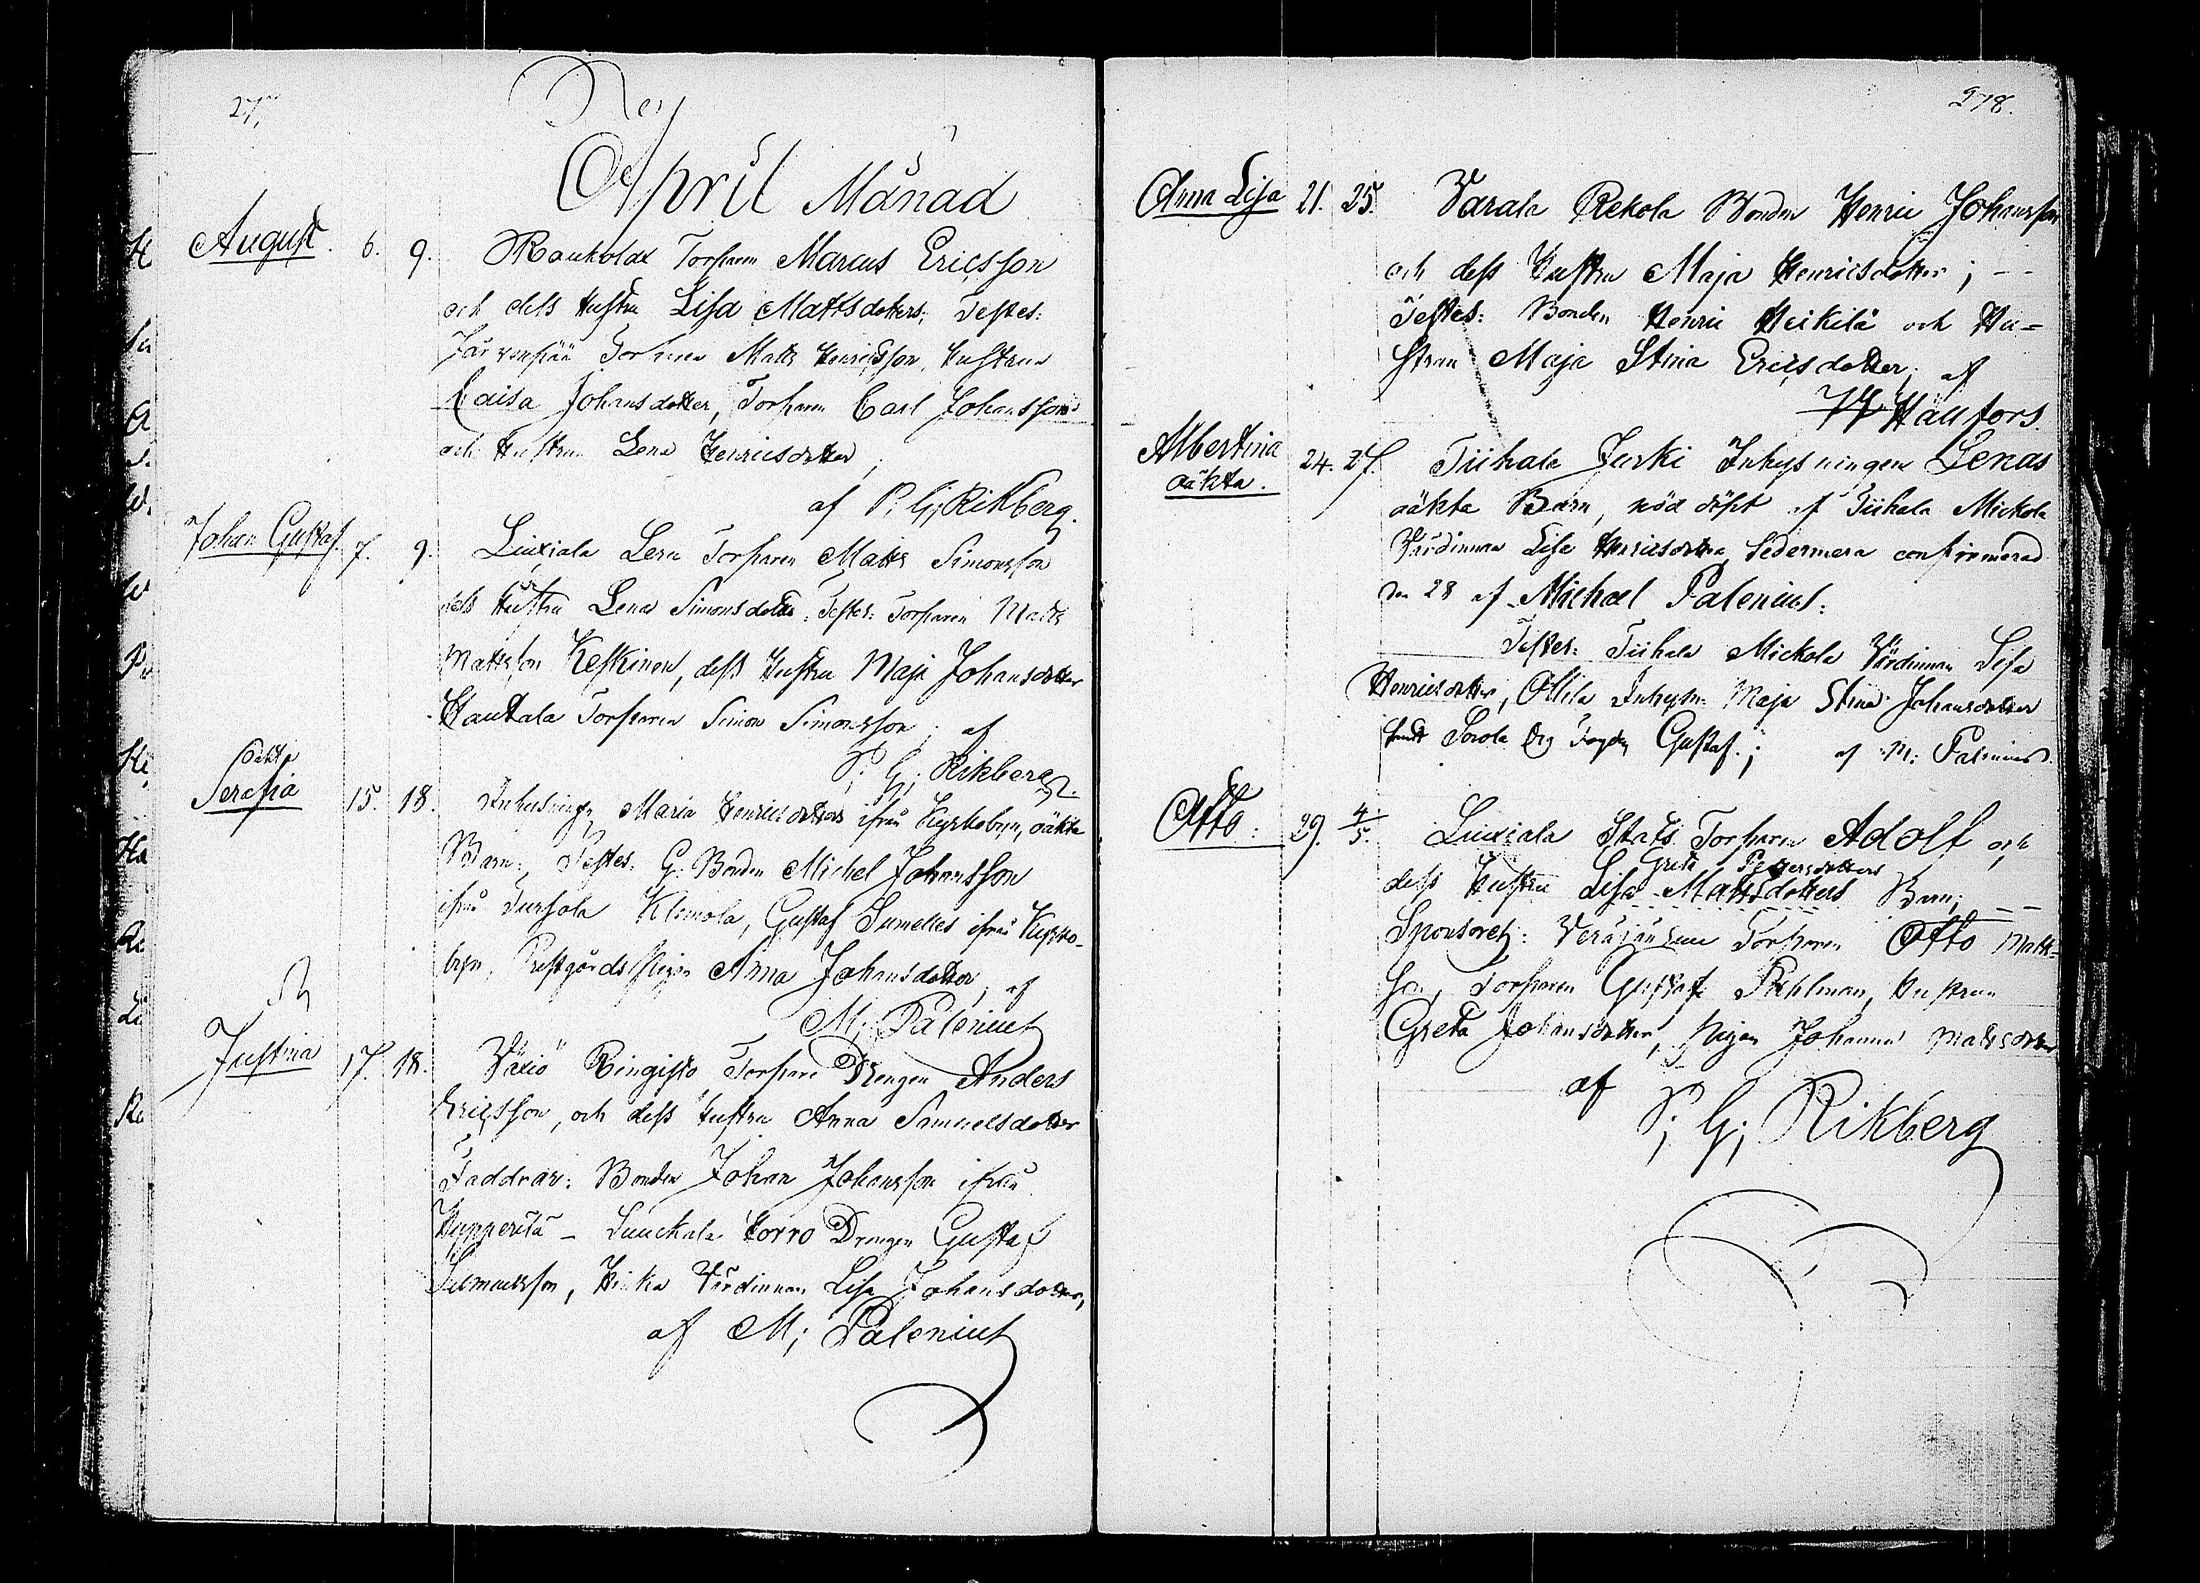 April Månad
August. 6. 9. Torparen Marcus Ericsson
och dess Hustru Lisa Mattsdotters; Testes:
Järvenpää Matts Henricsson, Hustrun
Caisa Johansdotter, Torparen Carl Johansson
och Hustrun Lena Henricsdotter;
af P. G; Rikberg.
Johan Gustaf. 7. 9. Liuxiala Torparen Matts Simonsson
dess Hustru Lena Simonsdotter. Testes: Torparen Matts
Mattsson Keskinen, dess Hustru Maja Johansdotter
Hautala Torparen Simon Simonsson; af
P; G; Rikberg.
oäkta
Serafia 15. 18. Maria Henricsdotters ifrån Kyrkobyn, oäkta
Barn; Testes: G. Bonden Michel Johansson
ifrån Tursola Klemola, Gustaf ifrån Kyrko-
byn, Prestgårds Pigan Anna Johansdotter, af
M; Palenius
Justina 17. 18. Torpare Drengen Anders
Ericsson, och dess Hustru Anna Samuelsdotter
Faddrar: Bonden Johan Johansson ifrån
Horro Drengen Gustaf
Samuelsson, Värdinnan Lisa Johansdotter,
af M; Palenius
278.
Anna Lisa 21. 25. Varala Rekola Bonden Henric Johansson
och dess Hustru Maja Henricsdotter; - -
Testes: Bonden Henric Heikilä och Hu-
strun Maja Stina Ericsdotter; af
Hällfors.
Albertina 24. 27. Tiihala Jurki Inhysningen Lenas
oäkta. oäkta Barn, nöd döpt af Tiihala Mickola
Värdinnan Lisa Henricsdotter, sedermera confirmerad
den 28 af Michael Palenius.
Testes: Tiihala Mickola Värdinnan Lisa
Henricsdotter, Ollila Maja Stina Johansdotter
Gustaf.; af M: Palenius.
Otto: 29. 4/5. Liuxiala Torparen Adolf och
Greta Pettersdotters
dess Hustru Lisa Mattsdotters Barn; - -
Torparen Otto Matts-
son, Torparen Gustaf Hustrun
Greta Johansdotter, Pigan Johanna Mattsdotter
af P; G; Rikberg